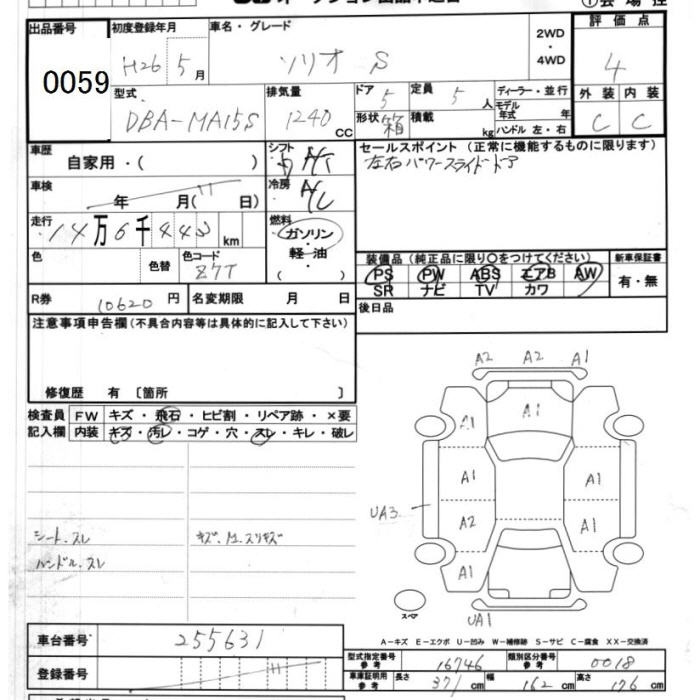 出品番号 初度登録年月 車名・グレード 2WD・4WD 評価点
0059 H26 5月 ソリオ S 4
型式 排気量 ドア 定員 ディーラー・並行 外装 内装
DBA-MA15S 1240 CC 5 5人 モデル年式 年 C C
形状 箱 積載 kg ハンドル 左・右
車歴 自家用・( ) シフト セールスポイント (正常に機能するものに限ります)
左右パワースライドドア
車検 年 月( 日) 冷房 A/C
走行 14万6千443km 燃料 ガソリン・軽油 ( )
色 色替 色コード Z7T
装備品 (純正品に限り〇をつけてください) 新車保証書
PS PW ABS エアB AW 有・無
SR ナビ TV カワ
R券 10620円 名変期限 月 日 後日品
注意事項申告欄(不具合内容等は具体的に記入して下さい)
修復歴 有 〔箇所 〕
検査員 FW キズ・飛石・ヒビ割・リペア跡・×要
記入欄 内装 キズ・汚レ・コゲ・穴・スレ・キレ・破レ
シート.スレ
ハンドル.スレ
A2 A2 A1
A1 A1
A1 A1
UA3 A2 A1
A1
スペア UA1
A-キズ E-エクボ U-凹み W-補修跡 S-サビ C-腐食 XX-交換済
車台番号 255631
登録番号
型式指定番号 参考 16746 類別区分番号 参考 0018
車庫証明用 参考 長さ 371cm 幅 162cm 高さ 176cm